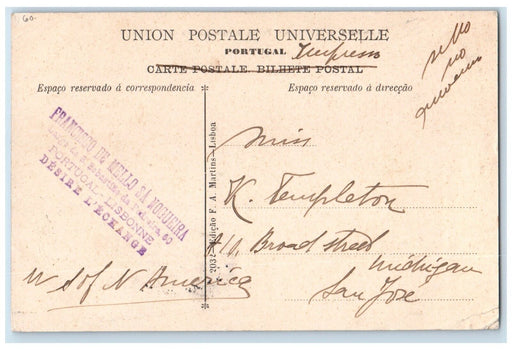 60
UNION POSTALE UNIVERSELLE
PORTUGAL Impresso
CARTE POSTALE. BILHETE POSTAL
Espaço reservado á correspondencia
Espaço reservado á direcção
sello
no
FRANCISCO DE MELLO SÁ NOGUEIRA
PORTUGAL-LISBONNE
DÉSIRE L'ÉCHANGE
2032 Edição F. A. Martins—Lisboa
Miss
K. Templeton
Broad street
Michigan
San Jose
U S of N America